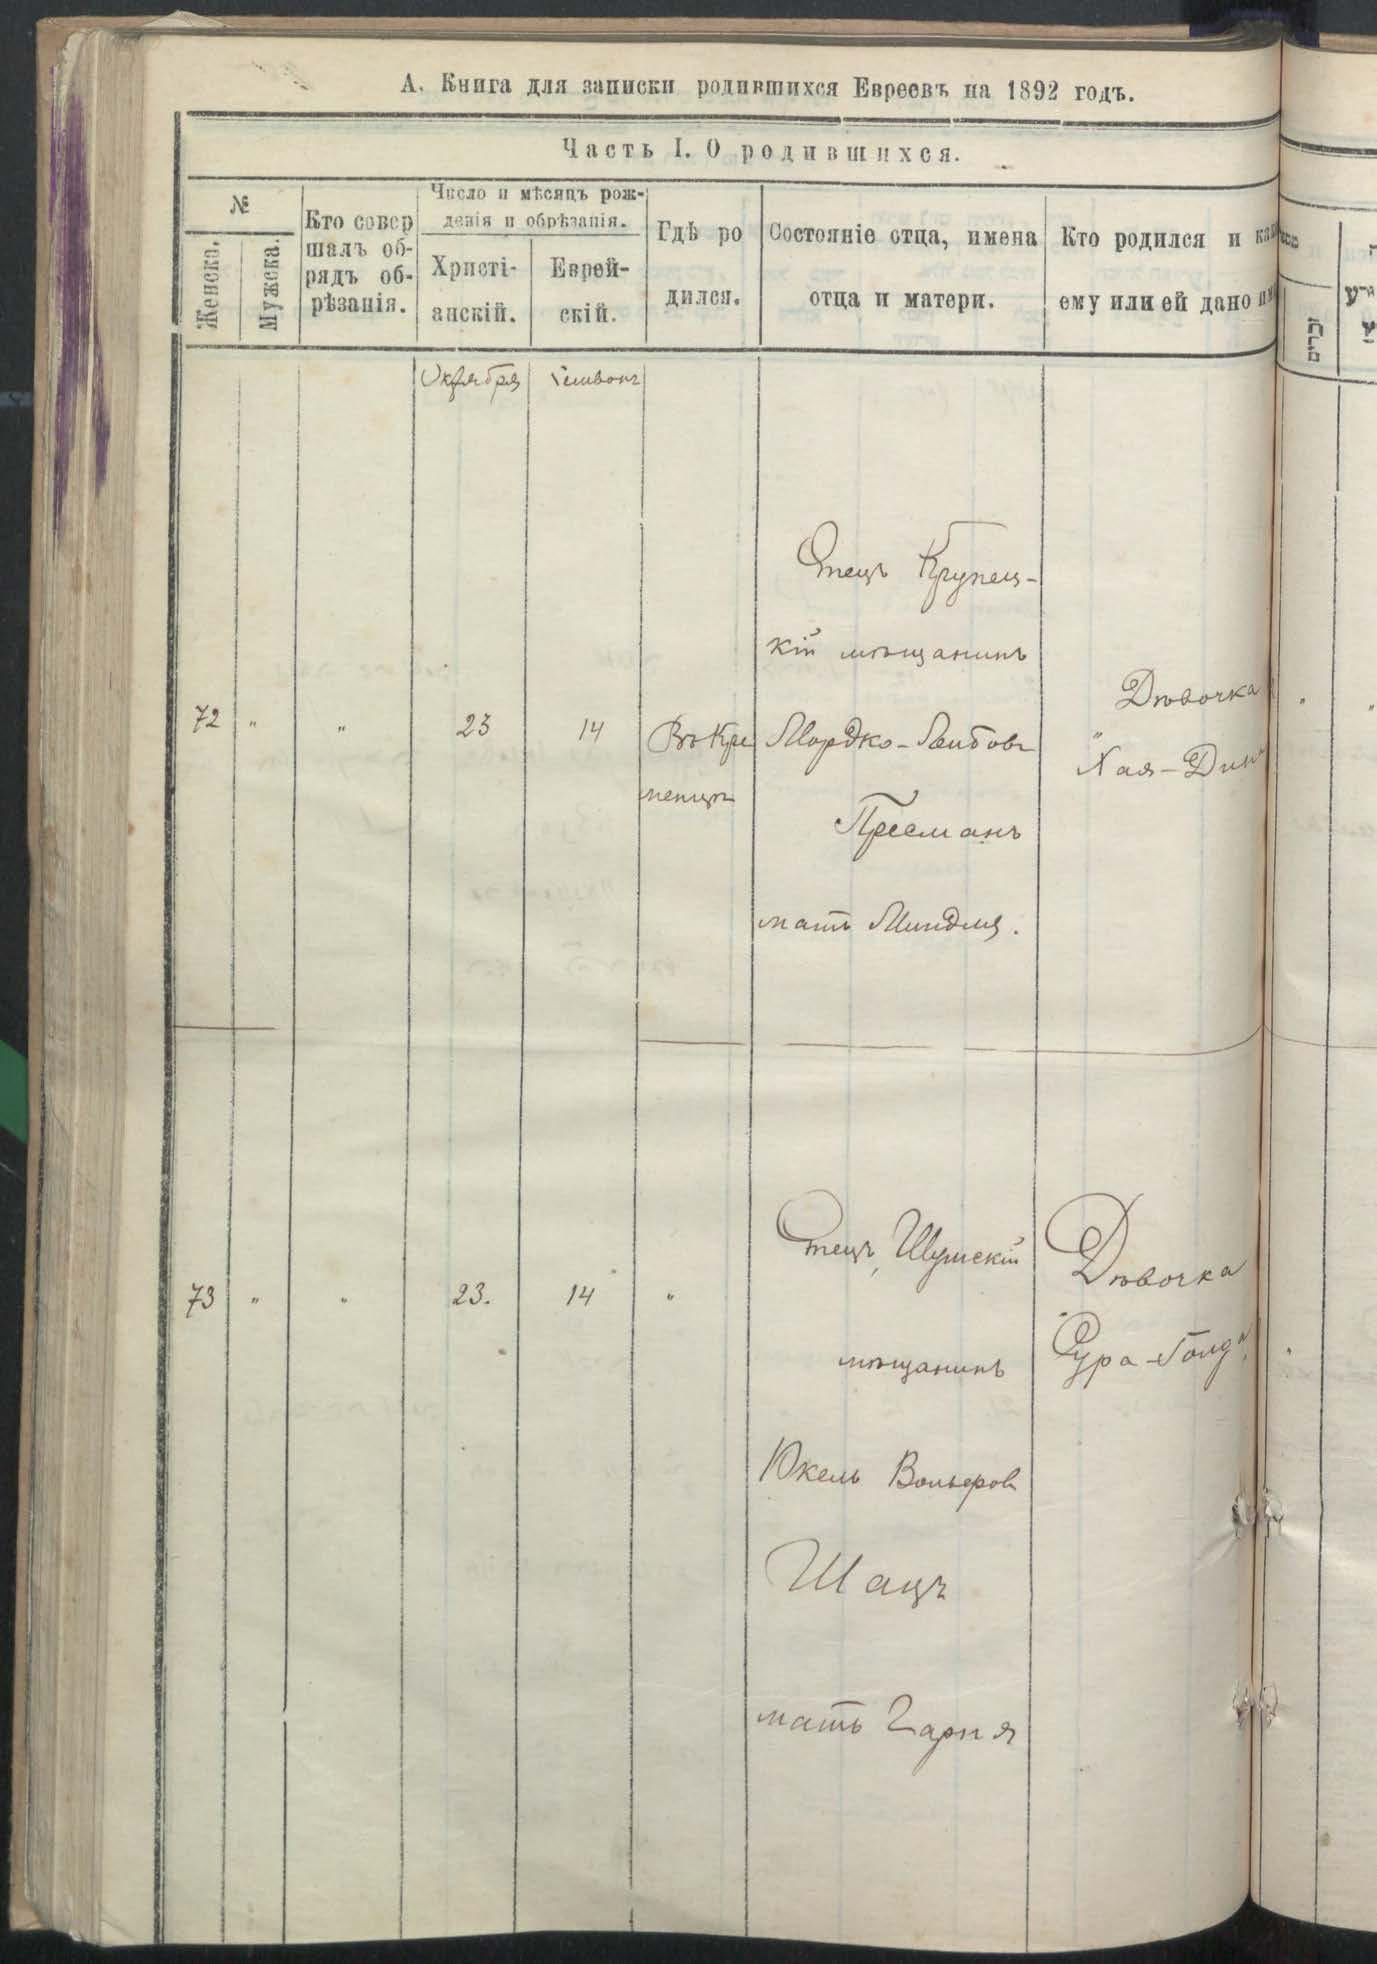 А. Книга для записки родившихся Евреевъ на 1892 годъ.
Часть I. О родившихся.
№
Женска.
Мужска.
Кто совер
шалъ об-
рядъ об-
рѣзанія.
Число и мѣсяцъ рож-
денія и обрѣзанія.
Христі-
анскій.
Еврей-
скій.
Гдѣ ро
дился.
Состояніе отца, имена
отца и матери.
Кто родился и как
ему или ей дано им
Октября
72 " " 23 14
Въ Кре
менцѣ
Отецъ Крупец-
кій мѣщанинъ
Мордко-Лейбовъ
Пресманъ
мать Миндля.
Дѣвочка
Хая-Дина
73 " " 23. 14 "
Отецъ Шумскій
мѣщанинъ
Юкель
Шацъ
мать
Дѣвочка
Сура-Голда
זכרים